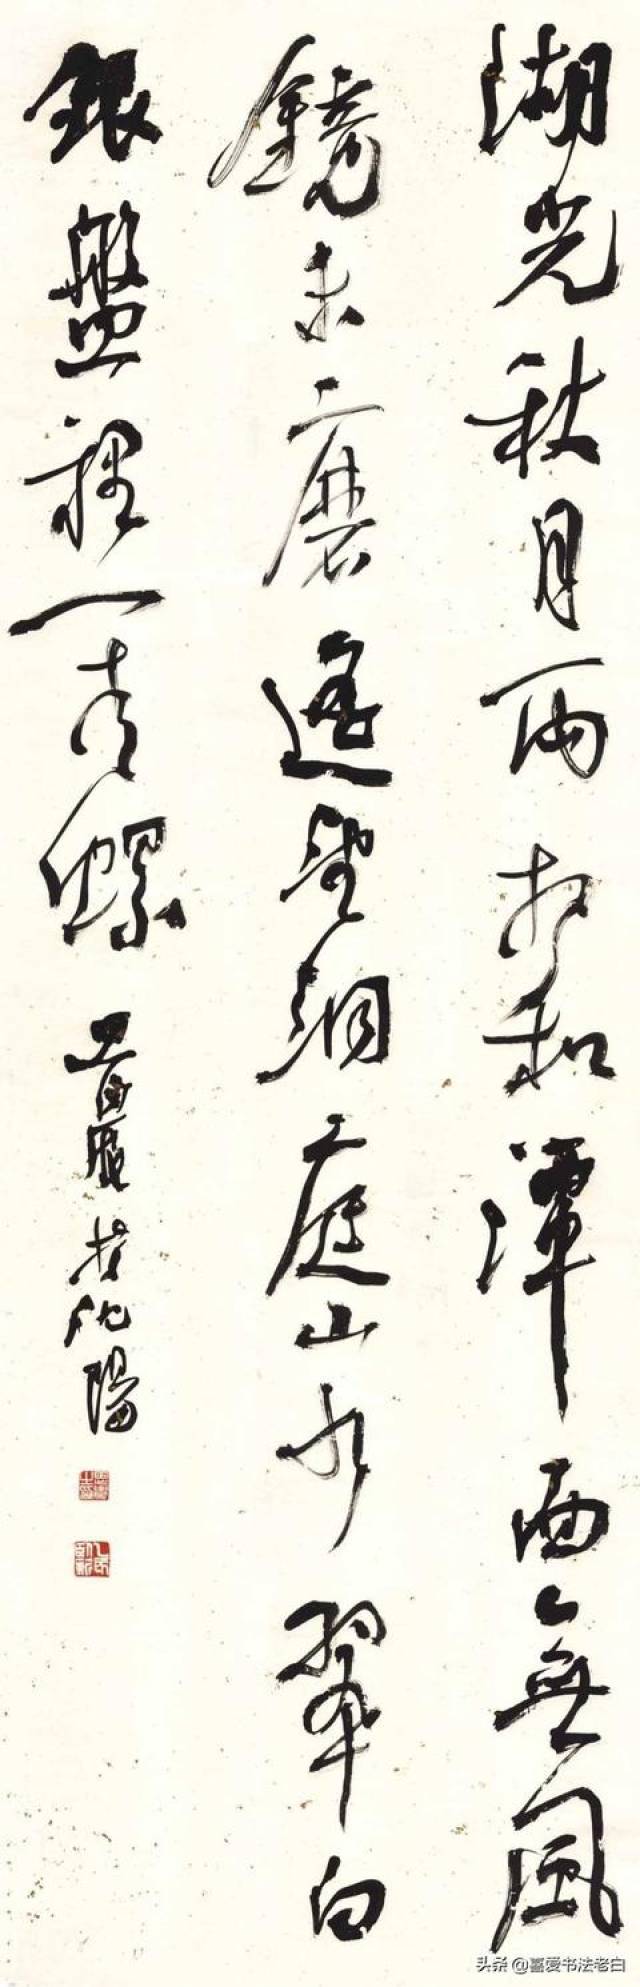 湖光秋月兩相和潭面無風
鏡未磨遙望洞庭山水翠白
銀盤裡一青螺
於沈陽
头条 @喜爱书法老白